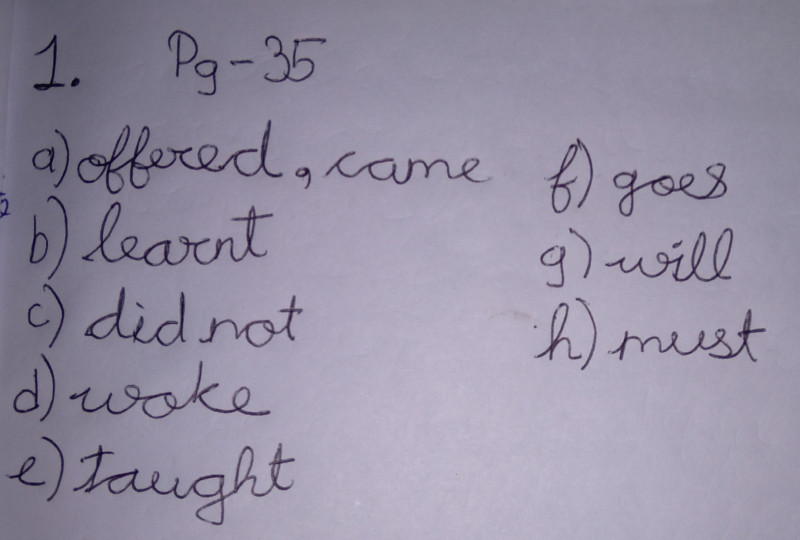 1. Pg-35
a) offered, came
b) learnt
c) did not
d) woke
e) taught
f) goes
g) will
h) must